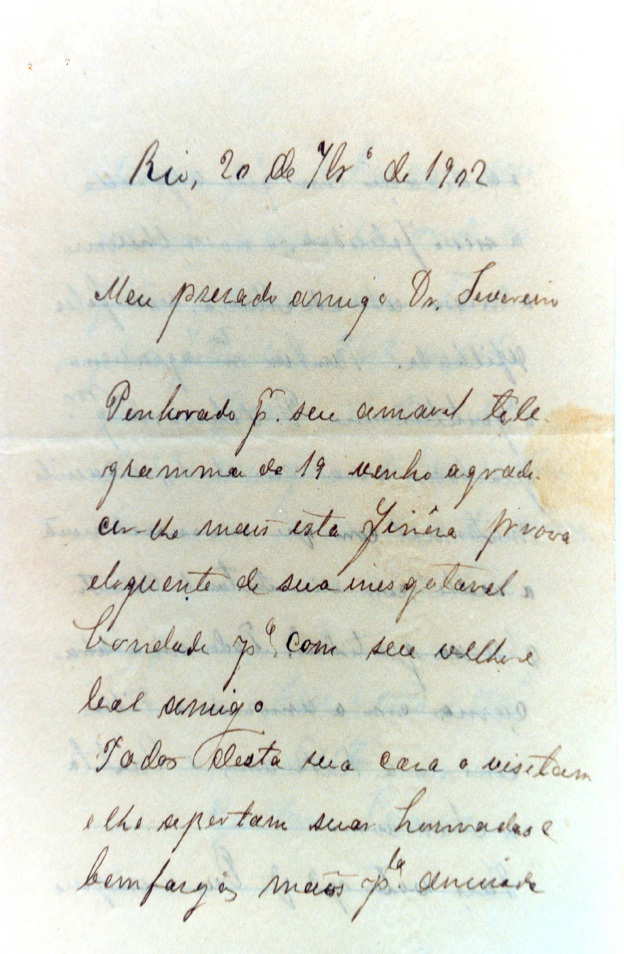 Rio, 20 de 7br.º de 1902
Meu presado amigo Dr. Severeiro
Penhorado p.r seu amavel tele-
gramma de 19 venho agrade-
cer-lhe mais esta prova
eloquente de sua inesgotavel
bondade p.ª com seu velho e
leal amigo
Todos desta sua casa o visitam
e lhe apertam suas honradas e
mãos p.la